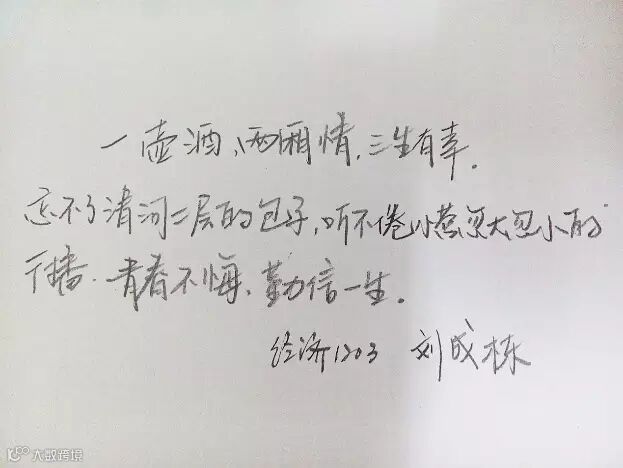 一壶酒、两厢情，三生有幸．
忘不了清河二层的包子，听不倦小葱忽大忽小的
广播．青春不悔、勤信一生．
经济1203 刘成栋
大数跨境